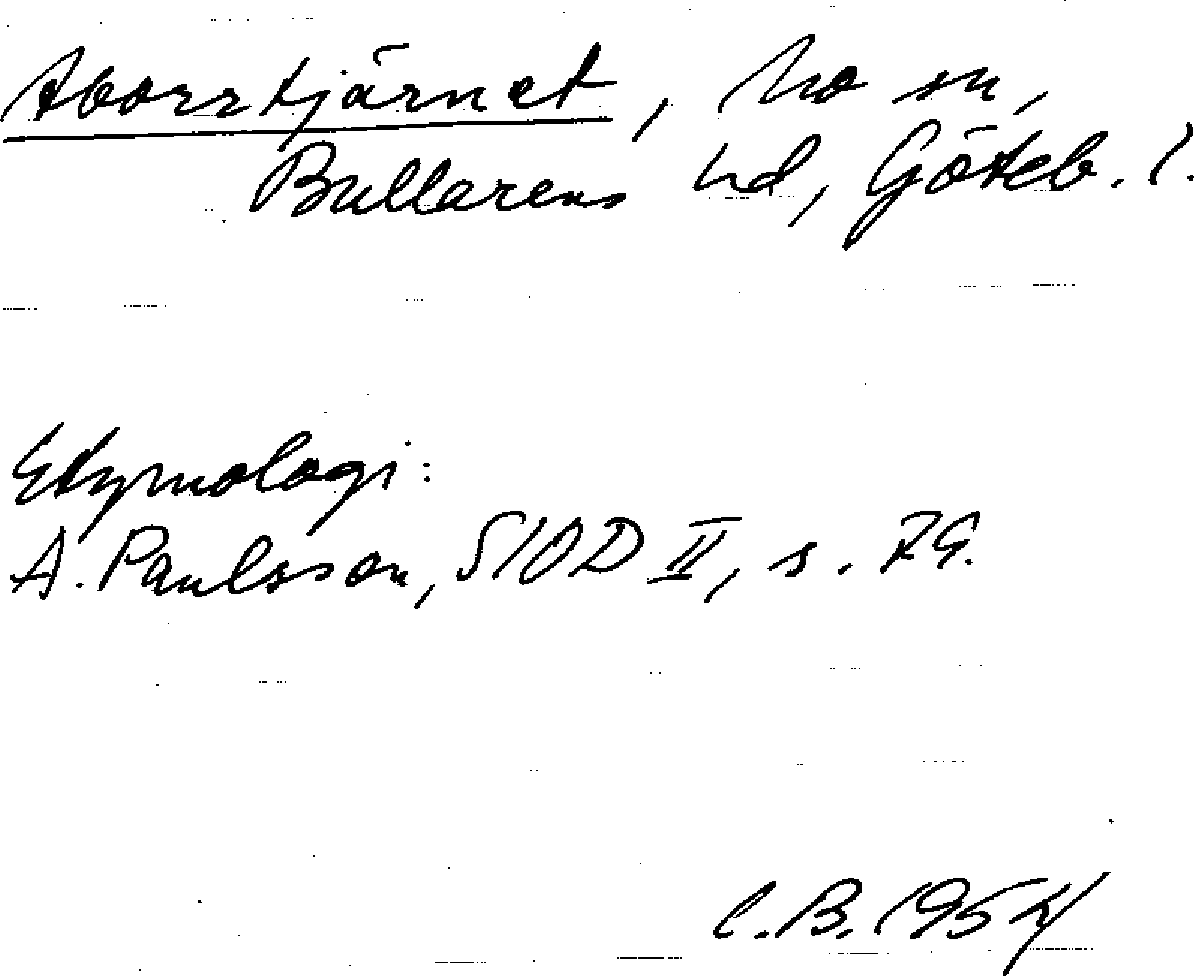 Aborrtjärnet, Mo sn,
Bullarens hd, Göteb. l.
Etymologi:
A. Paulsson, SIOD II, s. 79.
C.B. 1954